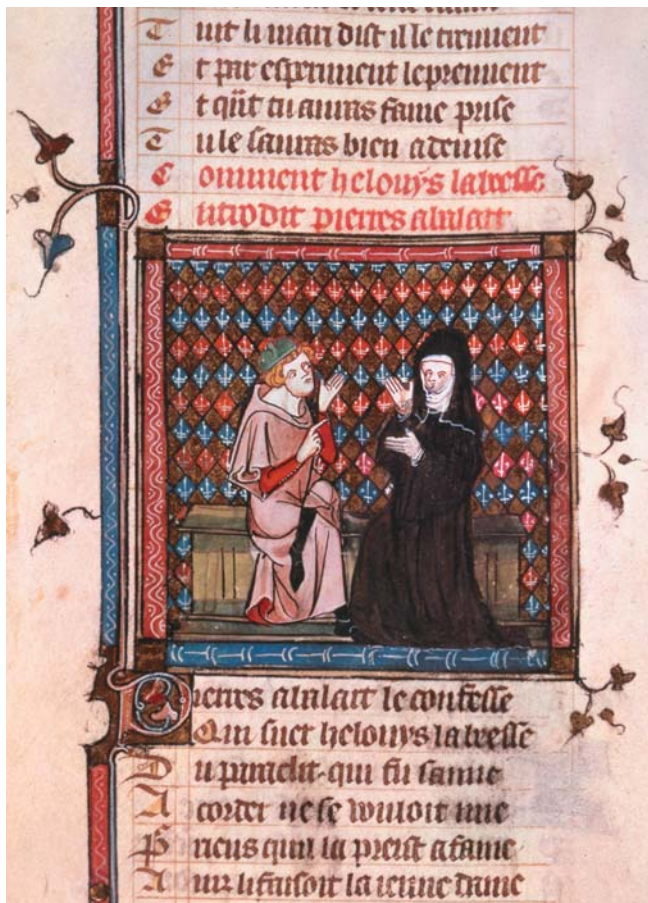 T uit li mari dist il le treuuent
E t par esperiment lepreuuent
E t qñt tu auras fame prise
T u le sauras bien a deuise
C omment helouys labeesse
E ntrodit pierres abalart
P ierres abalart le confesse
Q ui suer helouys labeesse
D u paraclit qui fu samie
A corder ne se vouloit mie
P
riens quil la preist a fame
A ins li faisoit la ieune dame